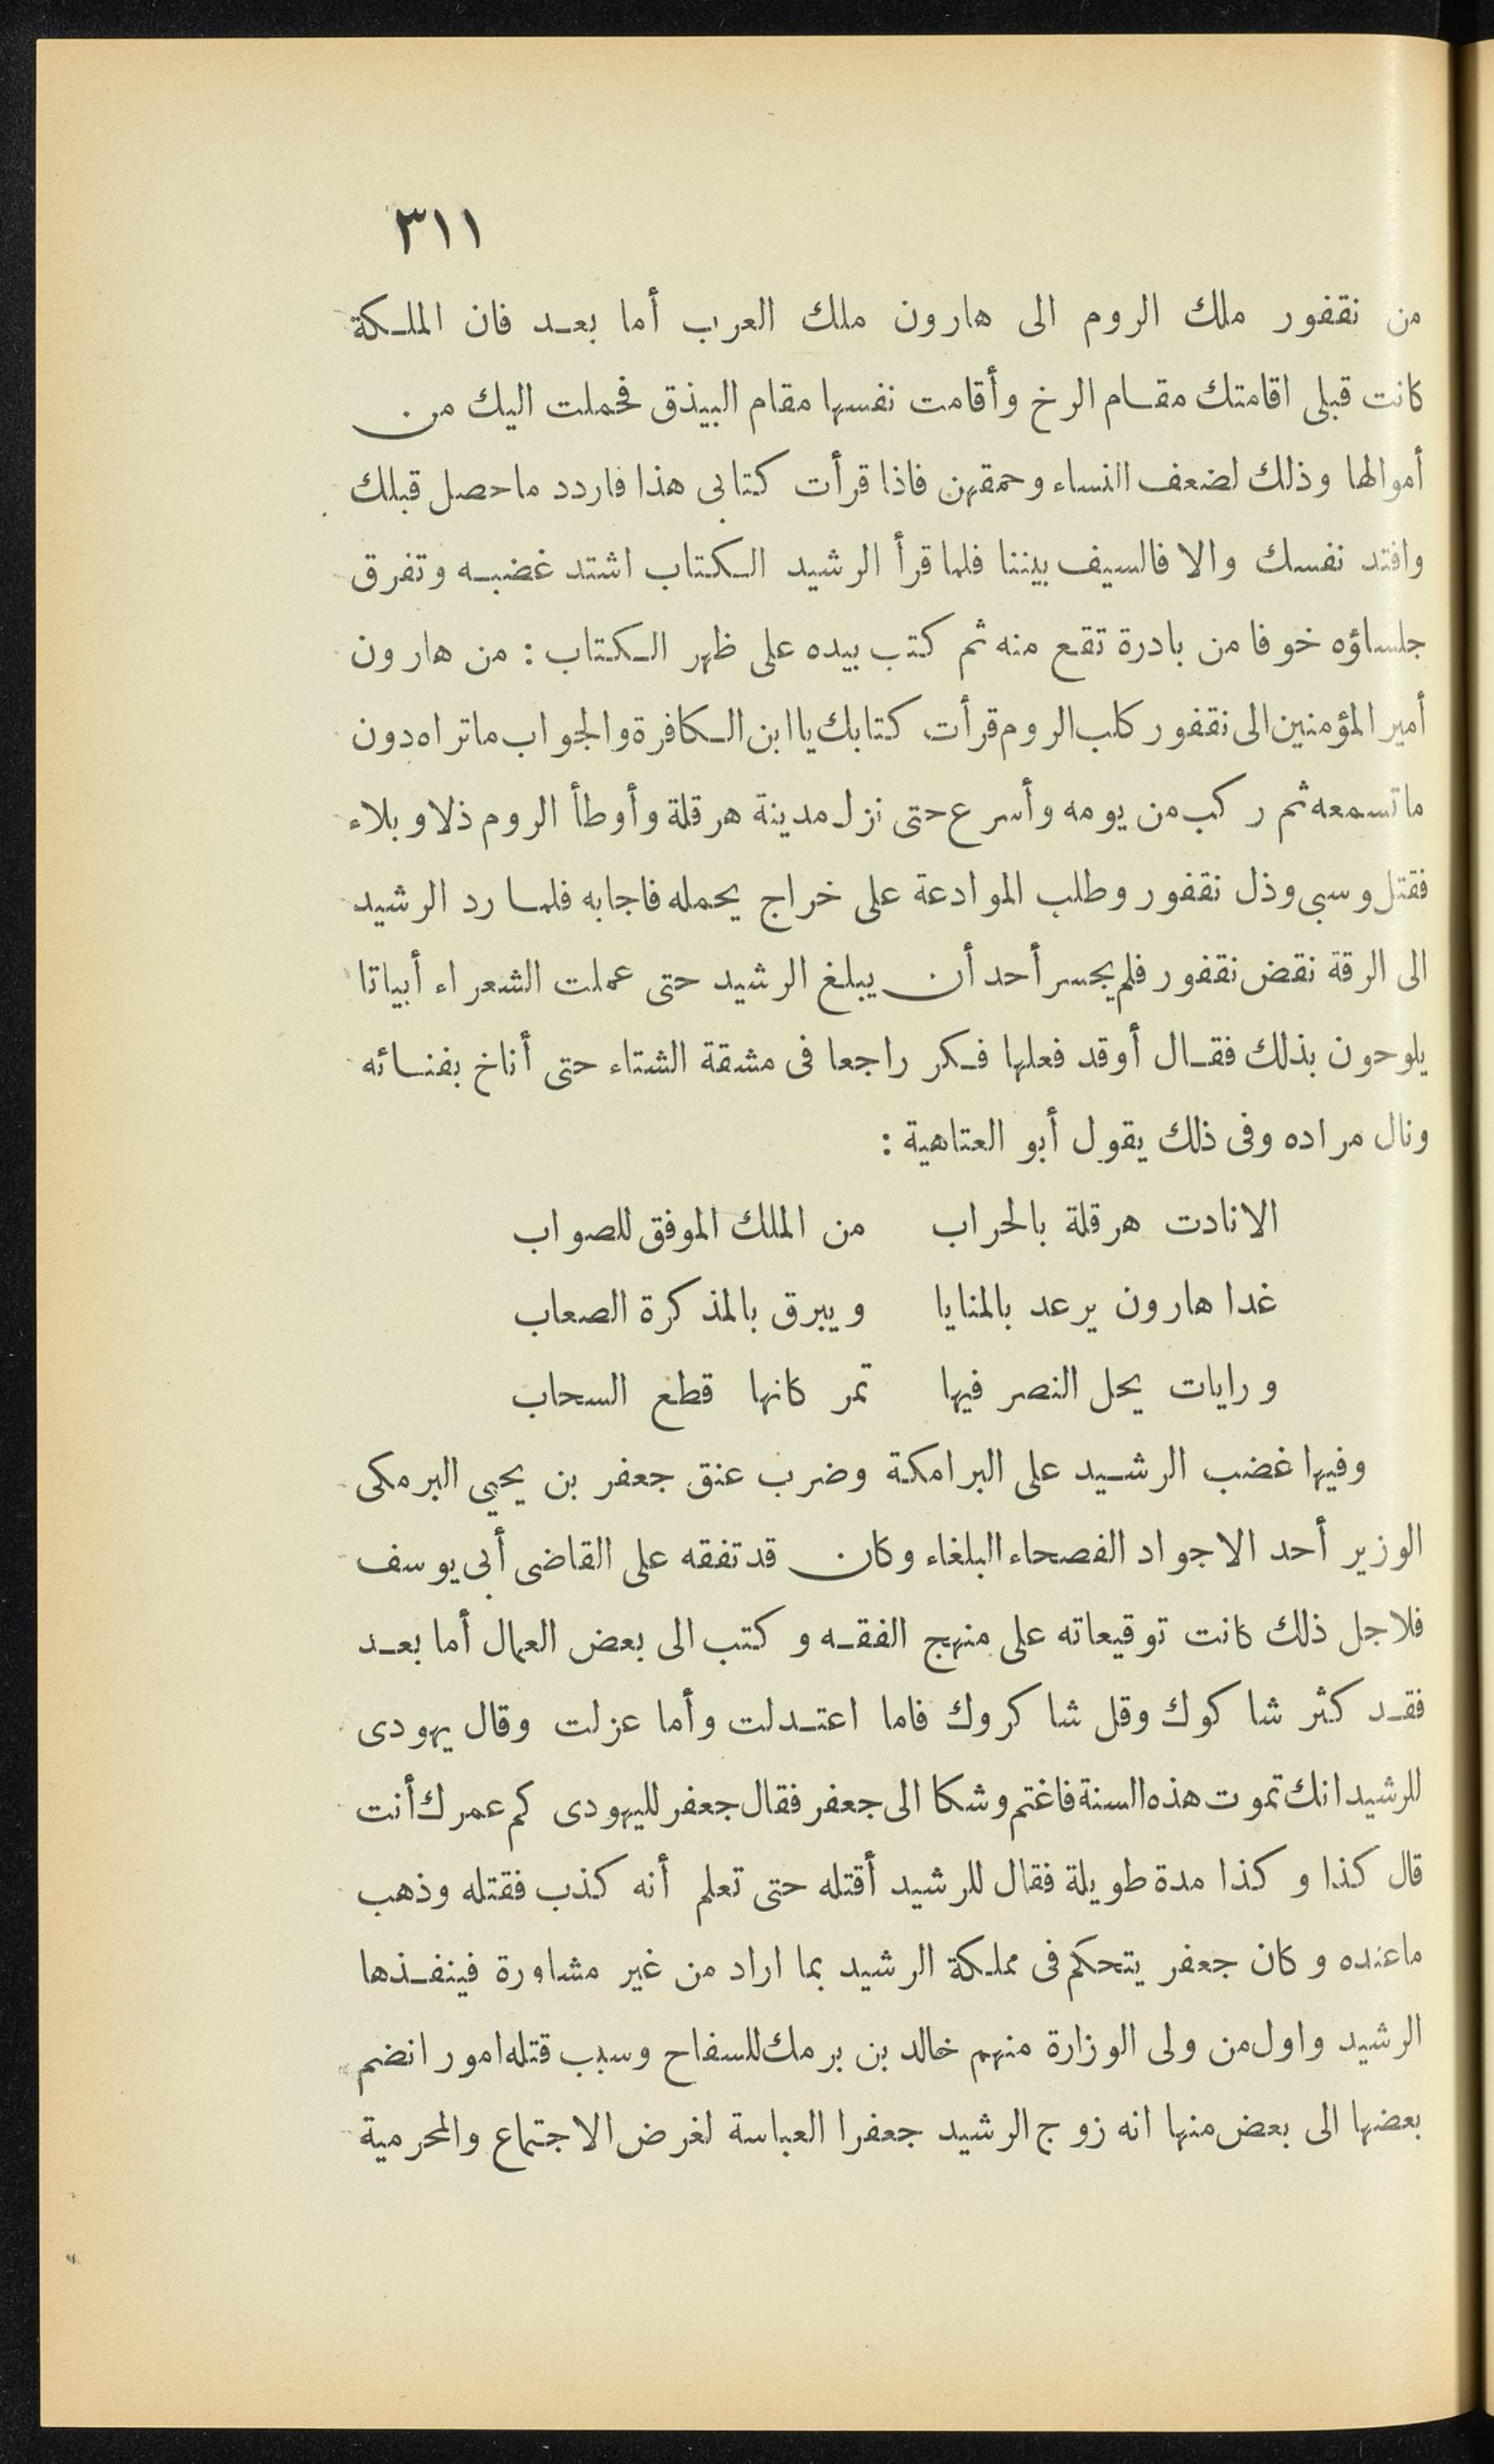 ٣١١
من نقفور ملك الروم الى هارون ملك العرب أما بعد فان الملكة
كانت قبلى اقامتك مقام الرخ وأقامت نفسها مقام البيذق فحملت اليك من
أموالها وذلك لضعف النساء وحمقهن فاذا قرأت كتابى هذا فاردد ماحصل قبلك
وافتد نفسك والا فالسيف بيننا فلما قرأ الرشيد الكتاب اشتد غضبه وتفرق
جلساؤه خوفا من بادرة تقع منه ثم كتب بيده على ظهر الكتاب : من هارون
أمير المؤمنين الى نقفور كلب الروم قرأت كتابك ياابن الكافرة والجواب ماتراه دون
ماتسمعه ثم ركب من يومه وأسرع حتى نزل مدينة هرقلة وأوطأ الروم ذلا وبلاء
فقتل وسبى وذل نقفور وطلب الموادعة على خراج يحمله فاجابه فلما رد الرشيد
الى الرقة نقض نقفور فلم يجسر أحد أن يبلغ الرشيد حتى عملت الشعراء أبياتا
يلوحون بذلك فقال أوقد فعلها فكر راجعا فى مشقة الشتاء حتى أناخ بفنائه
ونال مراده وفى ذلك يقول أبو العتاهية :
الانادت هرقلة بالحراب من الملك الموفق للصواب
غدا هارون يرعد بالمنايا ويبرق بالمذكرة الصعاب
ورايات يحل النصر فيها تمر كانها قطع السحاب
وفيها غضب الرشيد على البرامكة وضرب عنق جعفر بن يحيى البرمكى
الوزير أحد الاجواد الفصحاء البلغاء وكان قد تفقه على القاضى أبى يوسف
فلاجل ذلك كانت توقيعاته على منهج الفقه وكتب الى بعض العمال أما بعد
فقد كثر شاكوك وقل شاكروك فاما اعتدلت وأما عزلت وقال يهودى
للرشيد انك تموت هذه السنة فاغتم وشكا الى جعفر فقال جعفر لليهودى كم عمرك أنت
قال كذا وكذا مدة طويلة فقال للرشيد أقتله حتى تعلم أنه كذب فقتله وذهب
ماعنده وكان جعفر يتحكم فى مملكة الرشيد بما اراد من غير مشاورة فينفذها
الرشيد واول من ولى الوزارة منهم خالد بن برمك للسفاح وسبب قتله امور انضم
بعضها الى بعض منها انه زوج الرشيد جعفرا العباسة لغرض الاجتماع والمحرمية